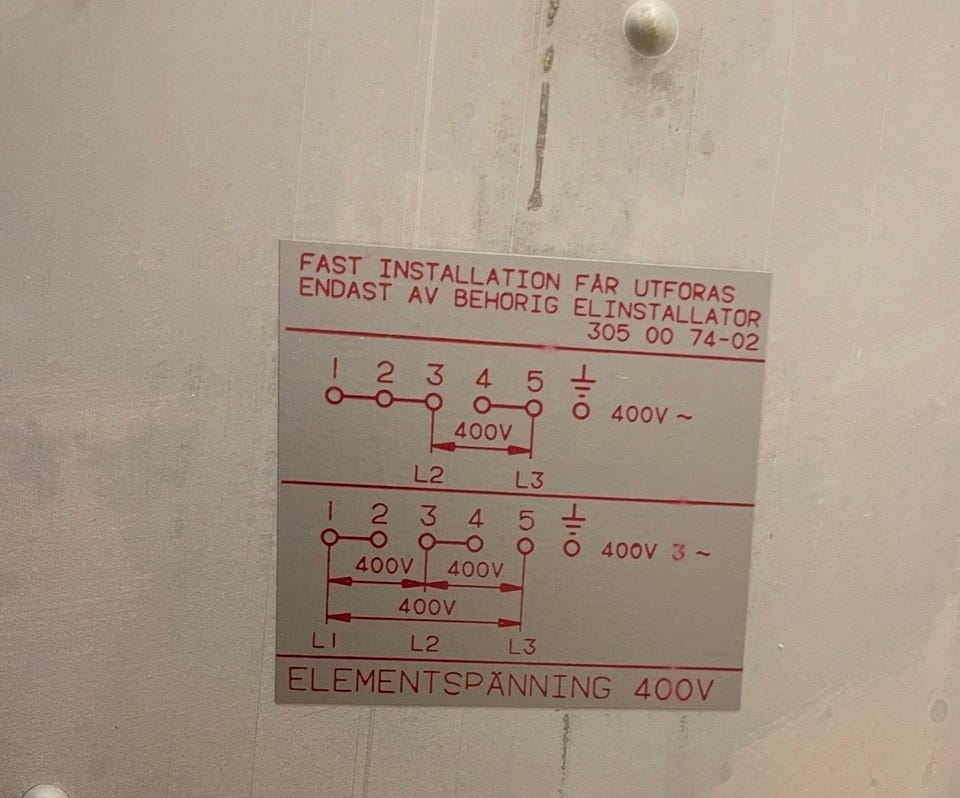 FAST INSTALLATION FÅR UTFORAS
ENDAST AV BEHORIG ELINSTALLATOR
305 00 74-02
1 2 3 4 5
400V ~
400V
L2 L3
1 2 3 4 5
400V 3 ~
400V 400V
400V
L1 L2 L3
ELEMENTSPÄNNING 400V